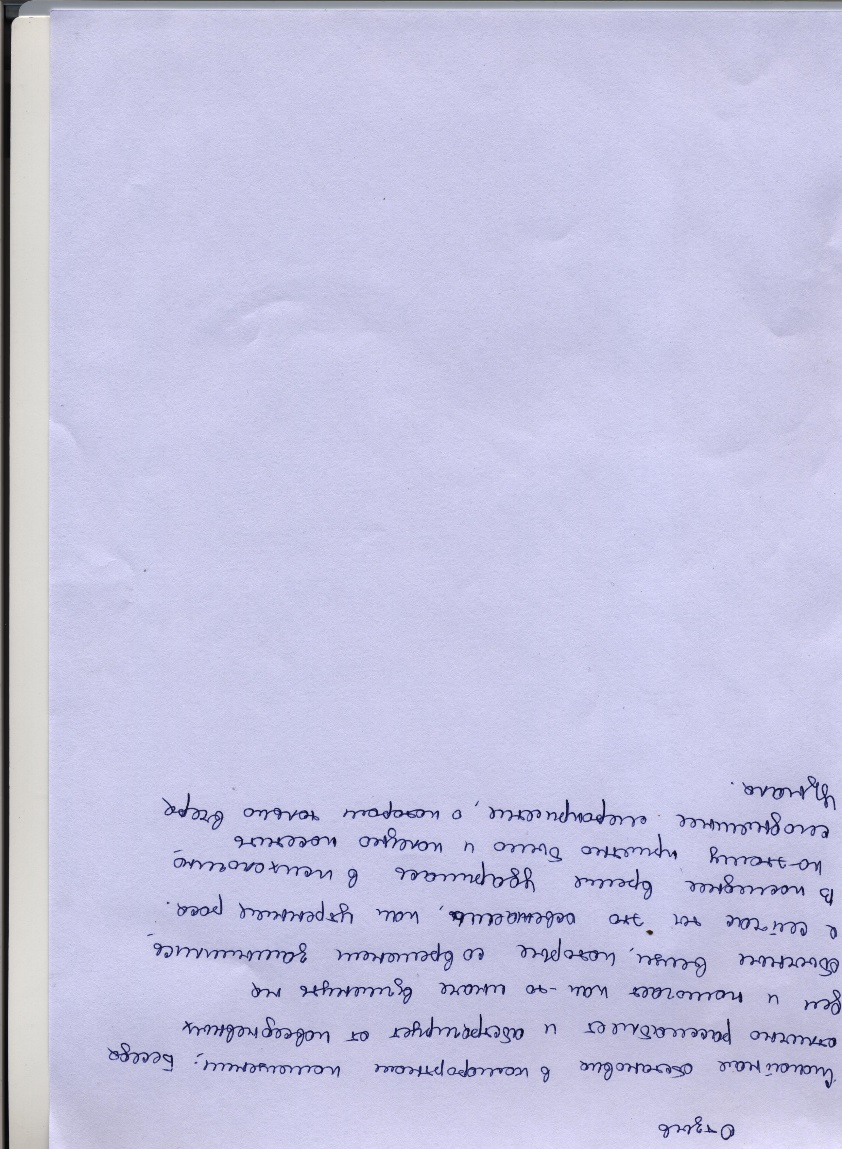 Отзыв
Спокойная обстановка в комфортном помещении, беседа
отлично расслабляет и абстрагирует от повседневных
дел и помогает как-то иначе взглянуть на
обычные вещи, которые со временем замылились,
а сейчас ты это освежаешь, как утренняя роса.
В последнее время ударилась в психологию,
по-этому приятно было и полезно посетить
сегодняшнее мероприятие, о котором только вчера
узнала.